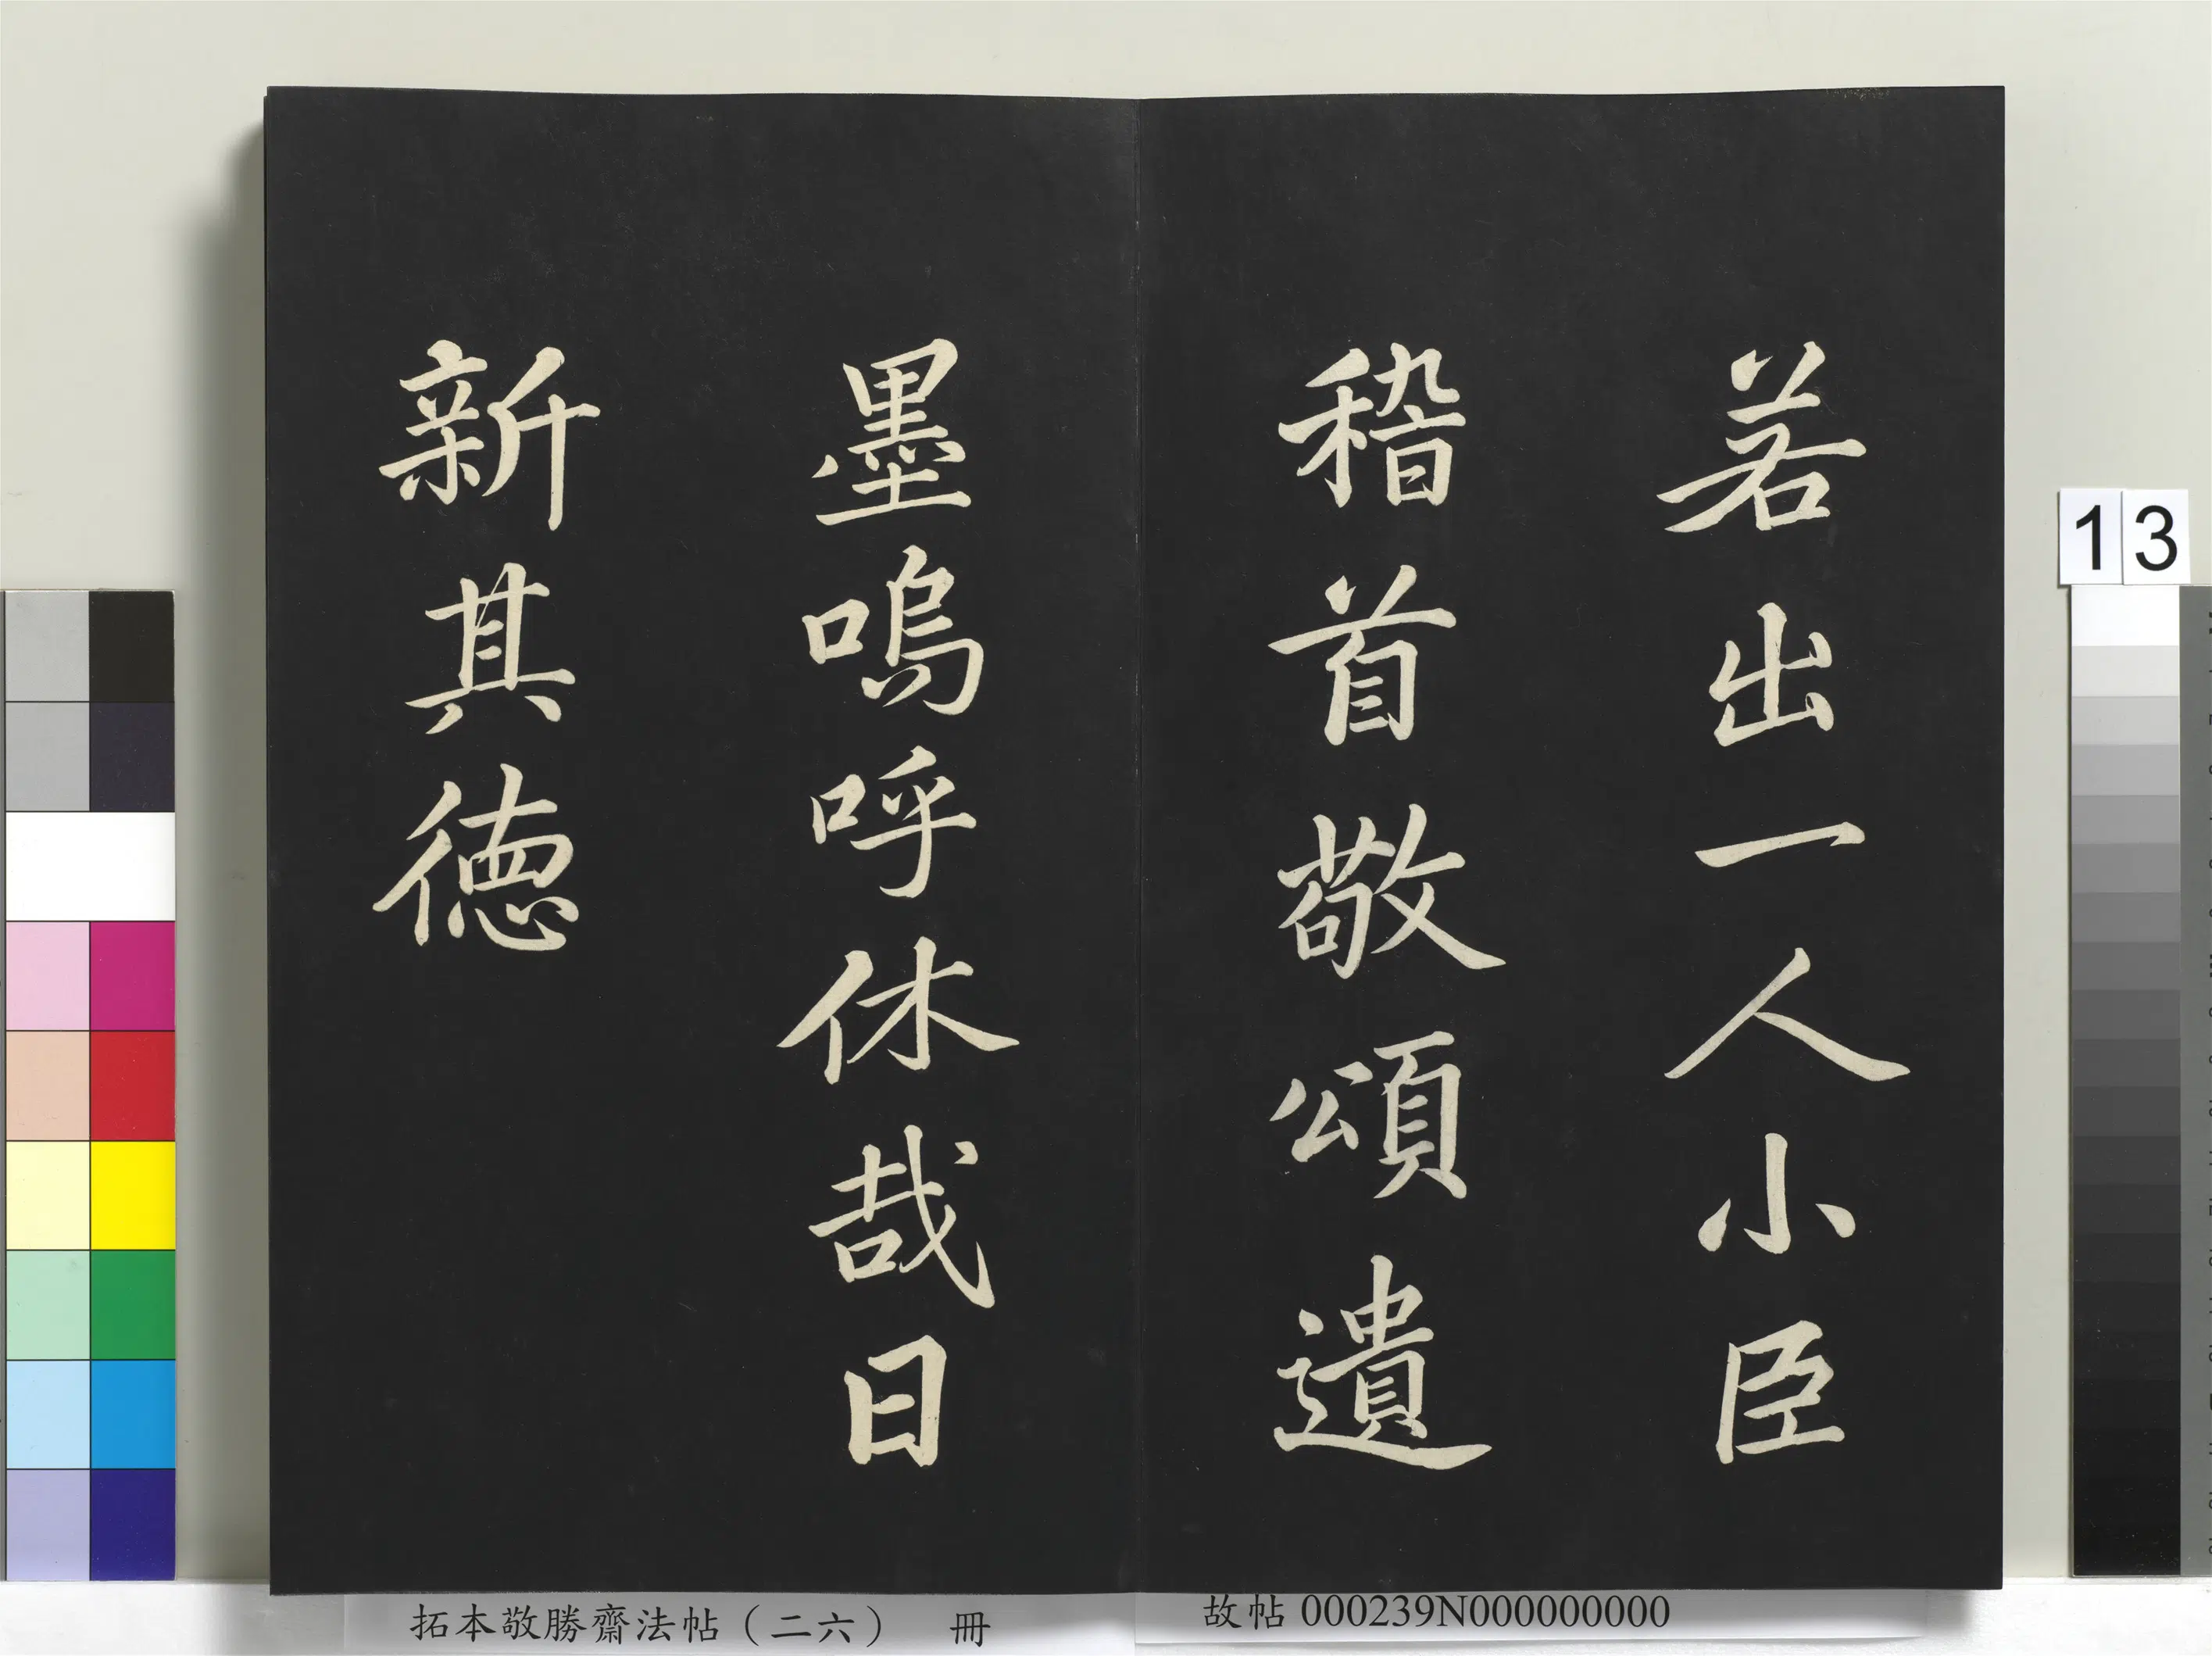 若出一人小臣
稽首敬頌遺
墨嗚呼休哉日
新其德
13
拓本敬勝齋法帖（二六） 冊
故帖 000239N000000000